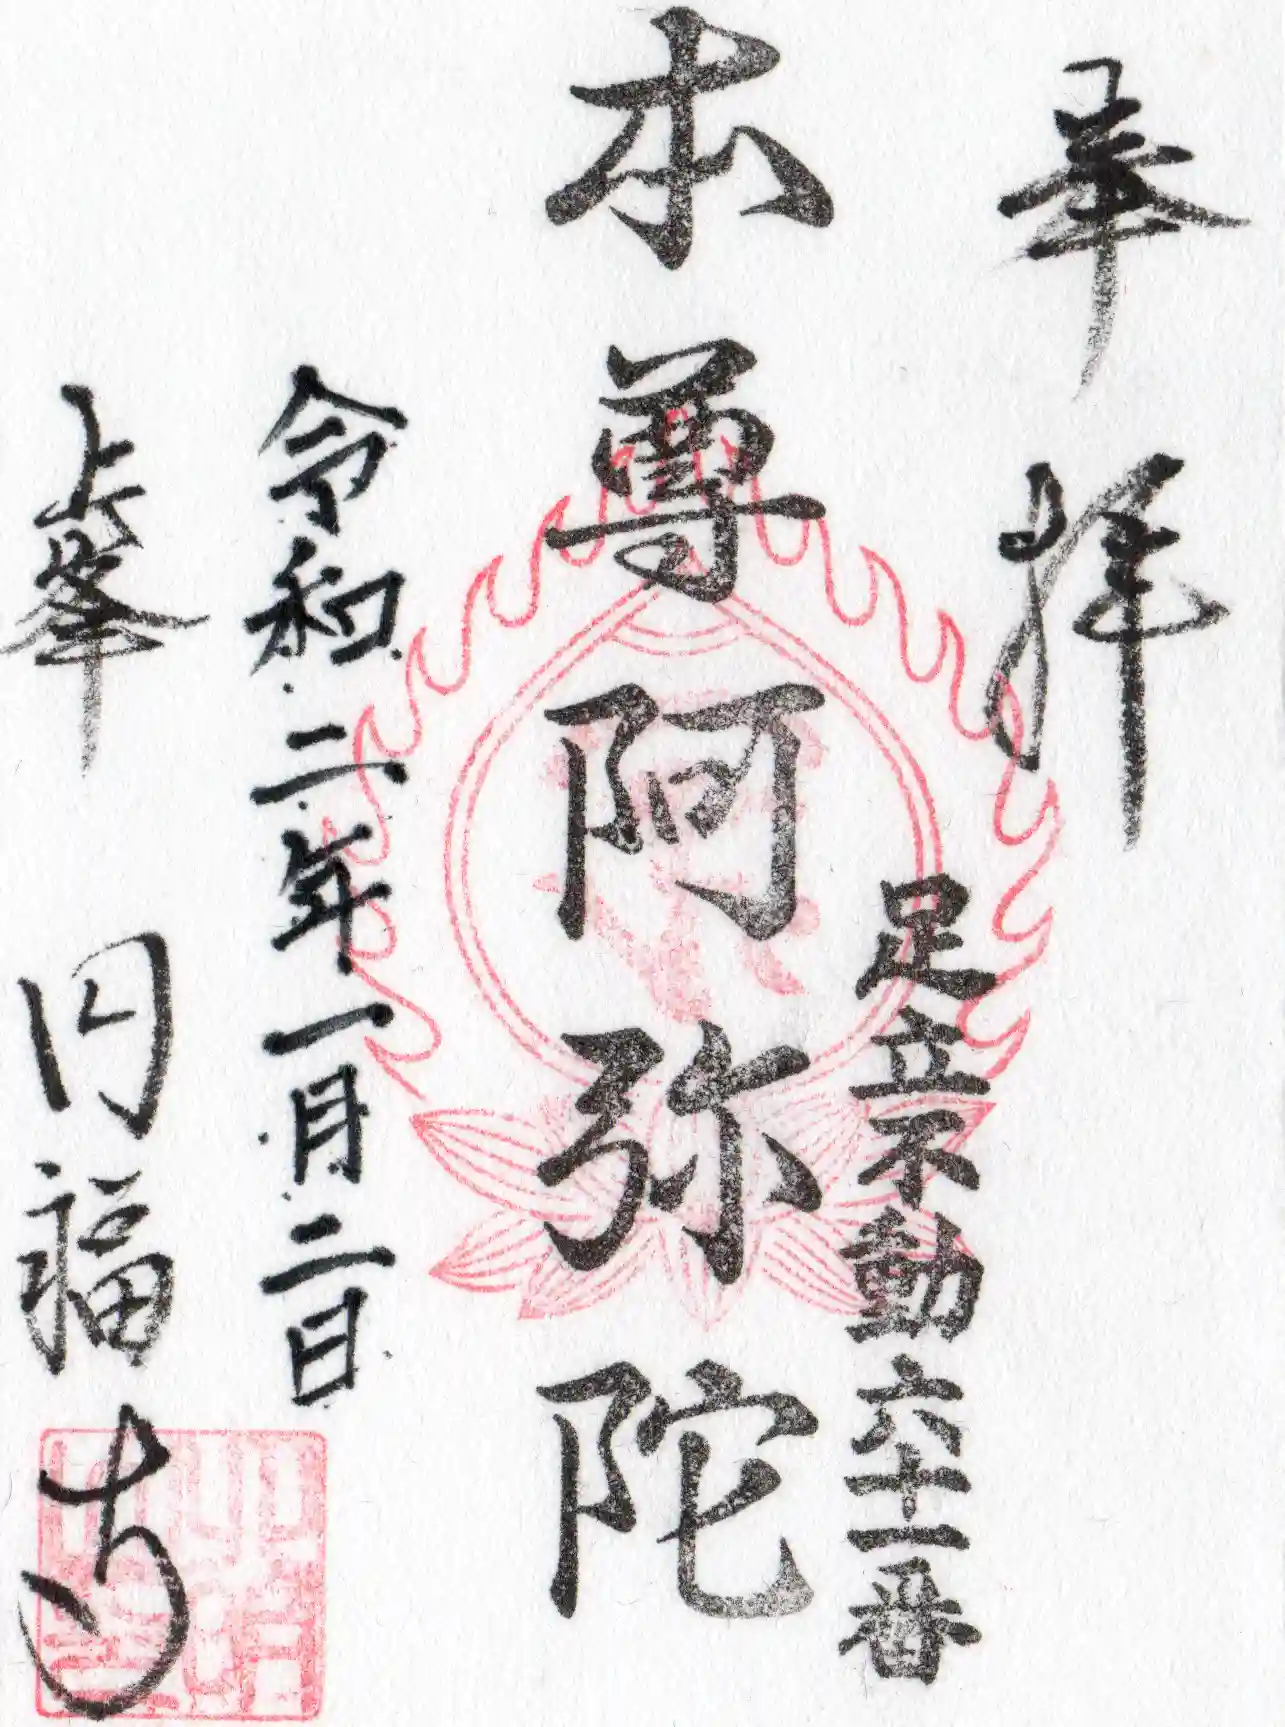 奉拝
足立不動六十一番
本尊阿弥陀
令和二年一月二日
上峯 円福寺